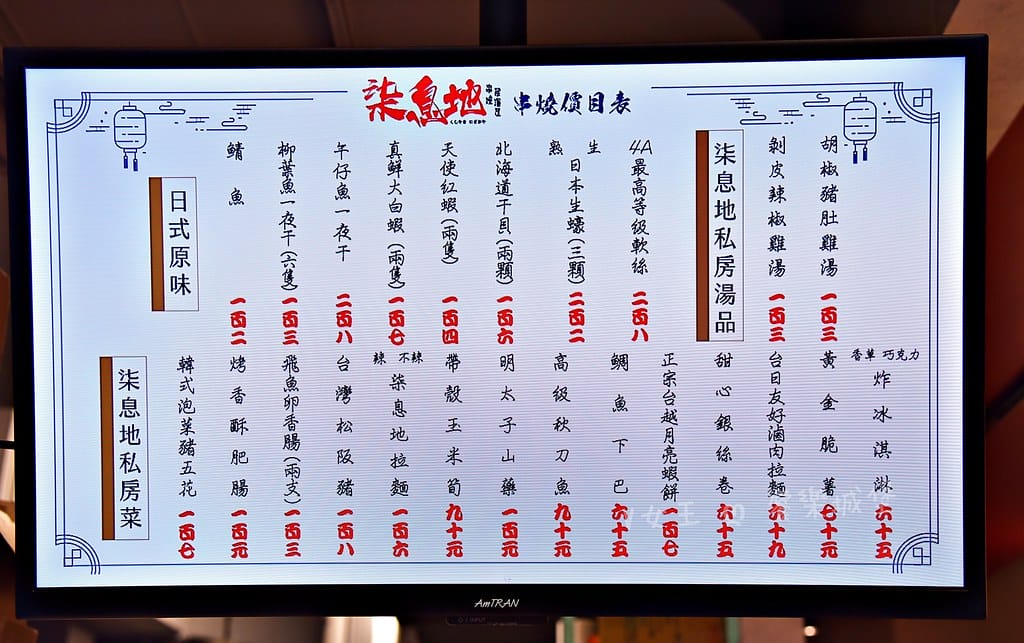 柒息地 串燒 居酒屋 串燒價目表
くしやき いざかや
柒息地私房湯品
胡椒豬肚雞湯 一百三
剝皮辣椒雞湯 一百三
4A最高等級軟絲 二百八
生 熟 日本生蠔(三顆) 二百二
北海道干貝(兩顆) 一百六
天使紅蝦(兩隻) 一百四
真鮮大白蝦(兩隻) 一百七
午仔魚一夜干 二百八
柳葉魚一夜干(六隻) 一百三
鯖魚 一百二
日式原味
香草 巧克力 炸冰淇淋 六十五
黃金脆薯 七十元
台日友好滷肉拉麵 六十九
甜心銀絲卷 六十五
正宗台越月亮蝦餅 一百七
鯛魚下巴 六十五
高級秋刀魚 九十元
明太子山藥 一百四
帶殼玉米筍 九十元
不辣 辣 柒息地拉麵 一百六
台灣松阪豬 一百八
飛魚卵香腸(兩支) 一百三
烤香酥肥腸 一百元
韓式泡菜豬五花 一百七
柒息地私房菜
AmTRAN